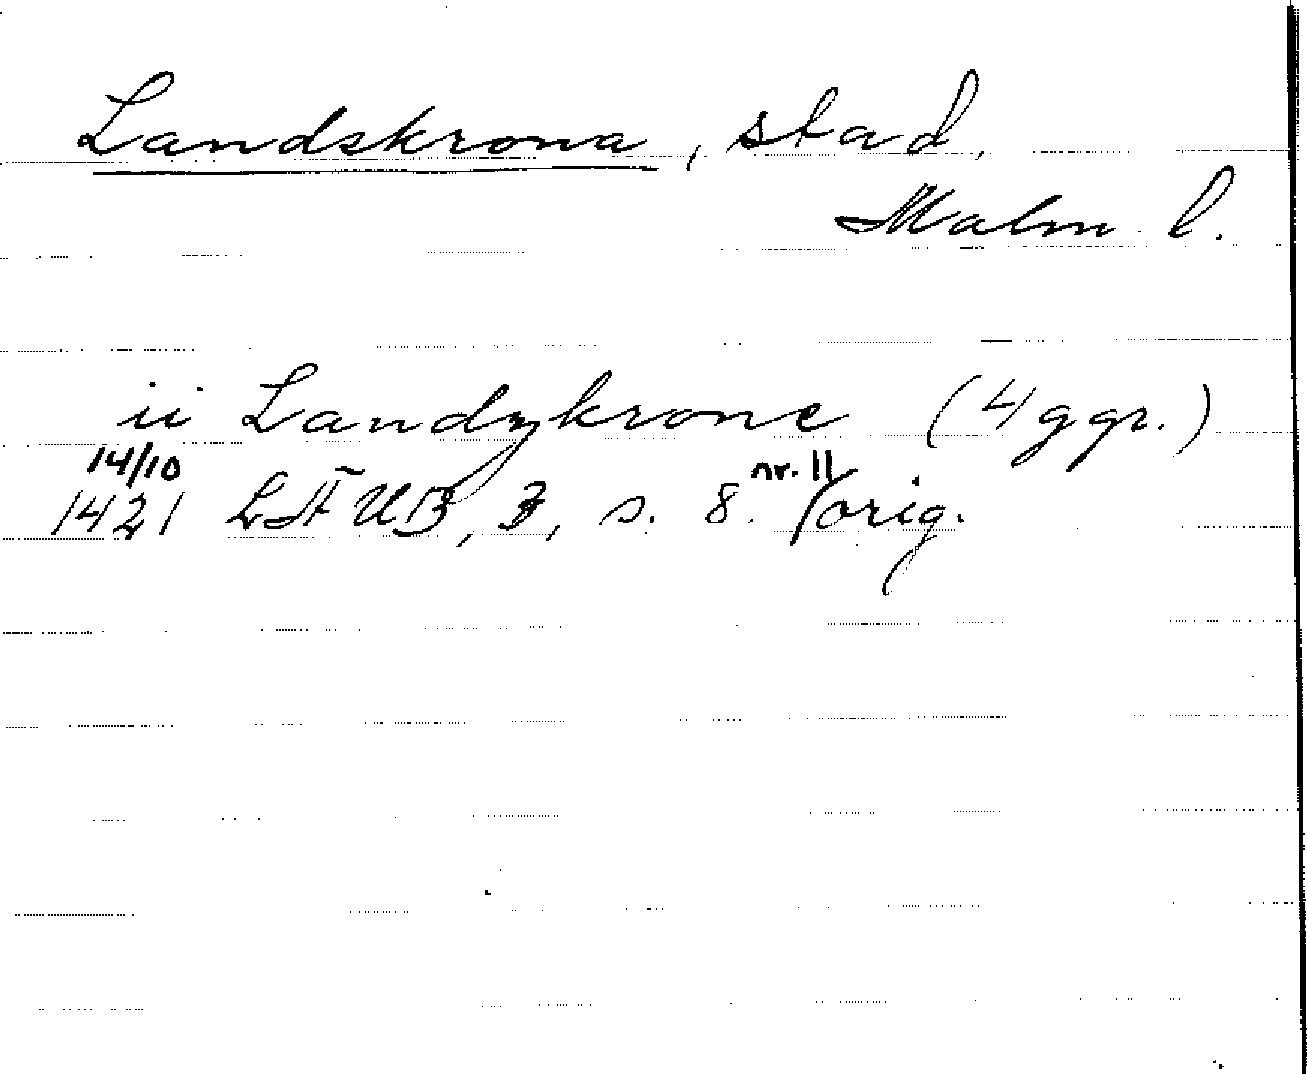 Landskrona, stad,
Malm l.
ii Landzkrone (4 ggr.)
14/10 nr. 11
1421 LÄUB, 3, s. 8. orig.